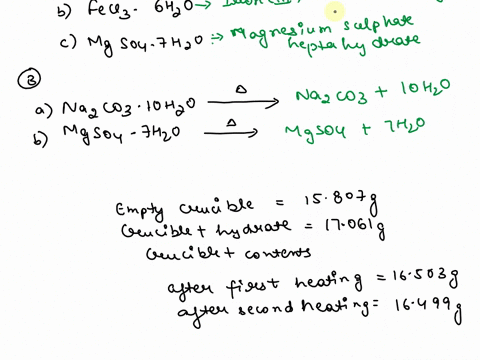 b) FeCl3. 6H2O →
c) MgSO4.7H2O → Magnesium sulphate
heptahydrate
③
a) Na2CO3.10H2O —Δ→ Na2CO3 + 10H2O
b) MgSO4-7H2O —Δ→ MgSO4 + 7H2O
Empty crucible = 15.807g
Crucible + hydrate = 17.061g
Crucible + contents
after first heating = 16.503g
after second heating = 16.499g